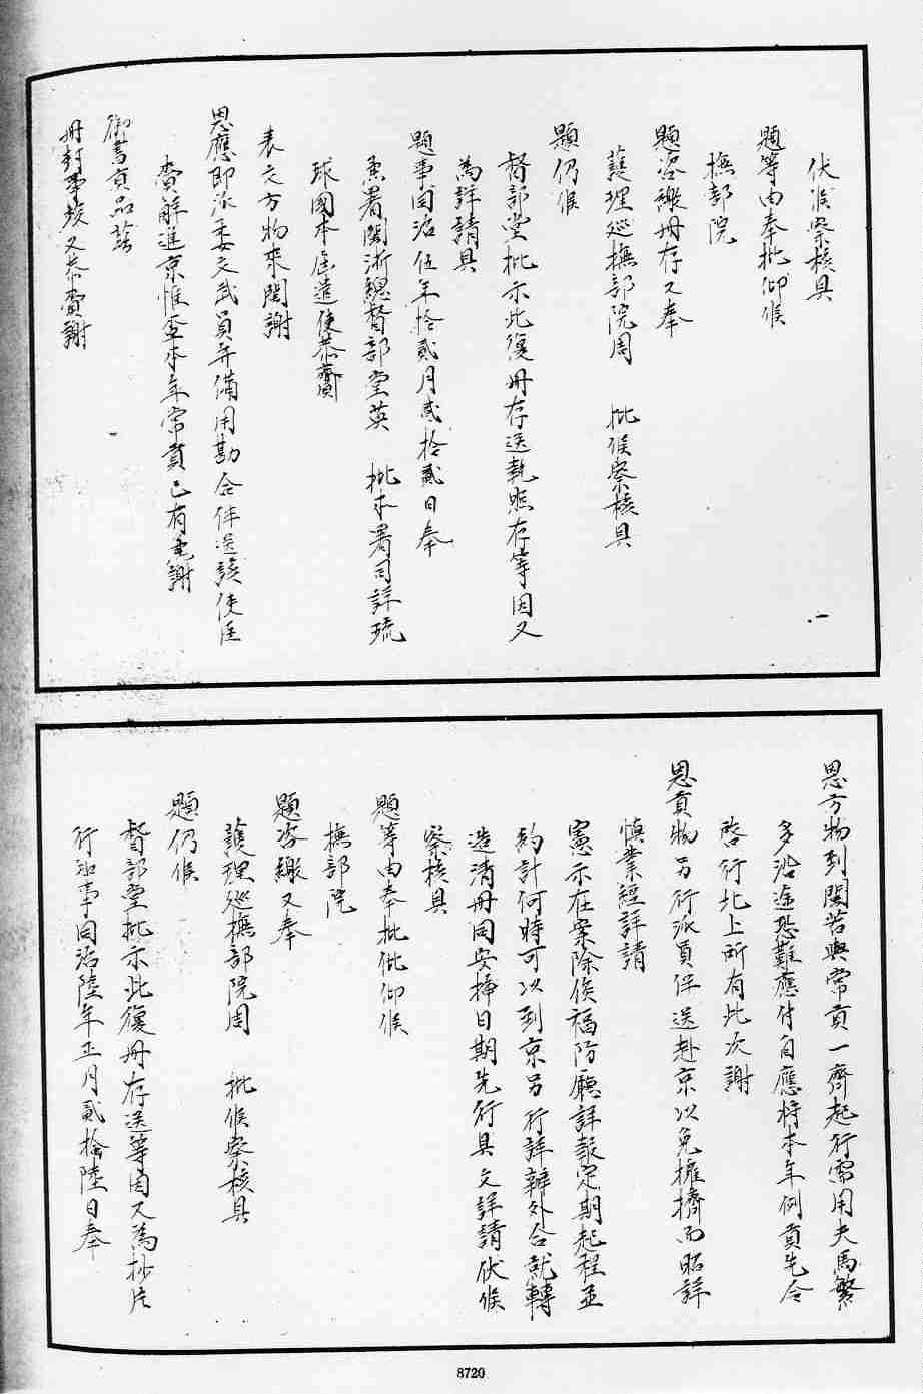 伏候察核具
題等由奉批仰候
撫部院
題咨繳册存又奉
護理巡撫部院周 批候察核具
題仍候
督部堂批示此復册存送執照存等因又
為詳請具
題事同治伍年拾貳月貳拾貳日奉
兼署閩浙總督部堂英 批本署司詳琉
球國本屆遣使恭齎
表文方物來閩謝
恩應即派委文武員弁備用勘合伴送該使臣
賫解進京惟查本年常貢已有
謝
御書貢品
册封事竣又恭賫謝
恩方物到閩若與常貢一齊起行需用夫馬繁
多沿途恐難應付自應將本年例貢先令
啓行北上所有此次謝
恩貢物另行派員伴送赴京以免擁擠而昭詳
慎業經詳請
憲示在案除俟福防廳詳報定期起程並
約計何時可以到京另行詳辦外合就轉
造清册同安掃日期先行具文詳請伏候
察核具
題等由奉批仰候
撫部院
題咨繳又奉
護理巡撫部院周 批候察核具
題仍候
督部堂批示此復册存送等因又為抄片
行知事同治陸年正月貳拾陸日奉
8720